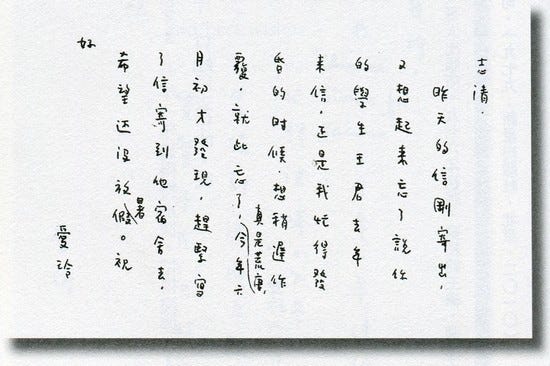 志清.
昨天的信剛寄出,
又想起來忘了說你
的學生王君去年
來信,正是我忙得發
昏的時候,想稍遲作
覆,就此忘了,真是荒唐,今年六
月初才發現,趕緊寫
了信寄到他宿舍去,
希望还没放暑假。祝
好
愛玲